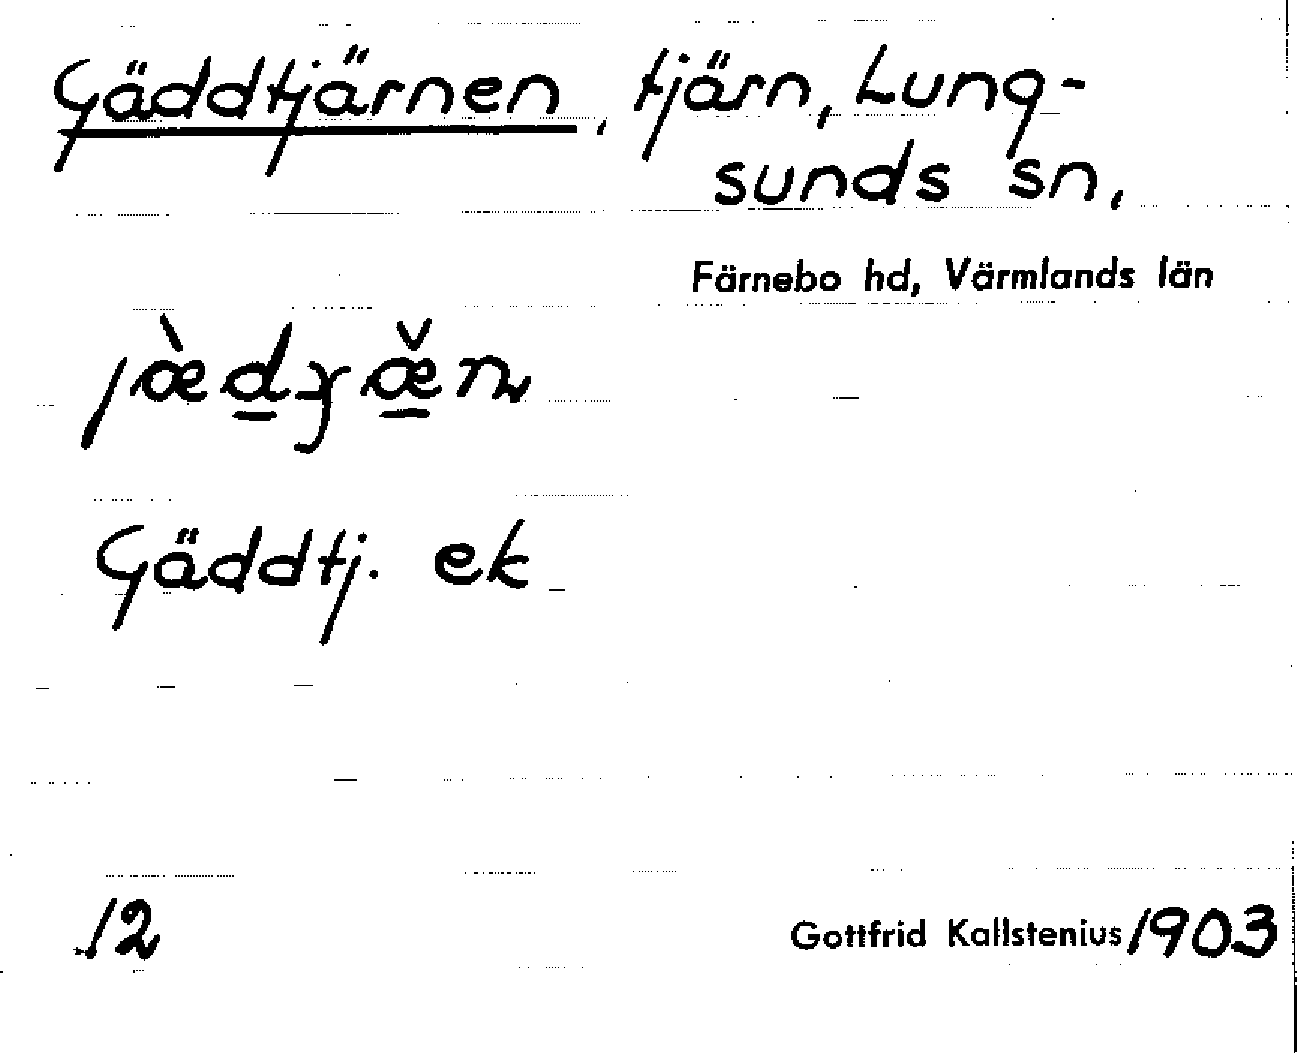 Gäddtjärnen, tjärn, Lung-
sunds sn,
Färnebo hd, Värmlands län
Gäddtj. ek
12
Gottfrid Kallstenius 1903